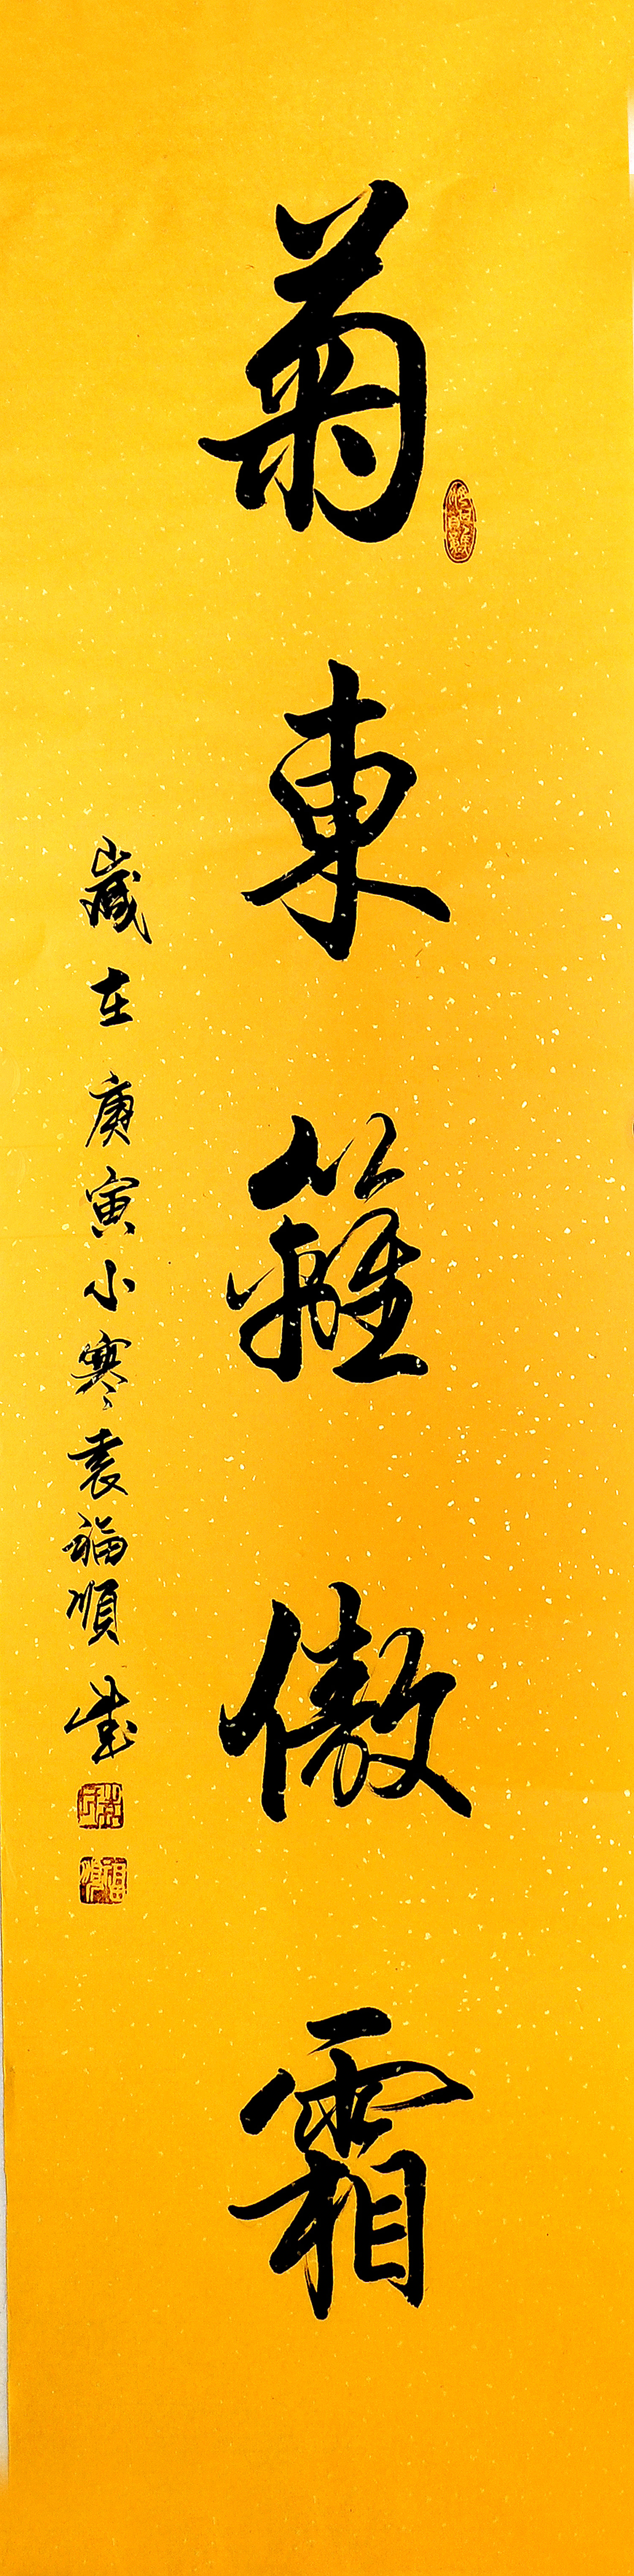 菊東籬傲霜
歲在庚寅小寒袁福順書